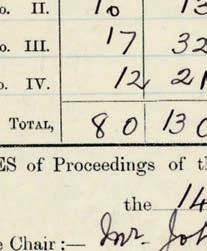 o. II. 10 13
o. III. 17 32
o. IV. 12 21
TOTAL, 80 130
ES of Proceedings of th
the 14
e Chair:— Mr. Joh